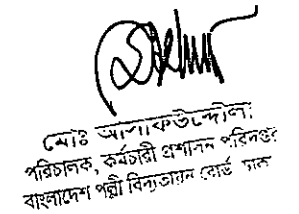 মোঃ
পরিচালক, কর্মচারী প্রশাসন পরিদপ্তর
বাংলাদেশ পল্লী বিদ্যুতায়ন বোর্ড ঢাকা